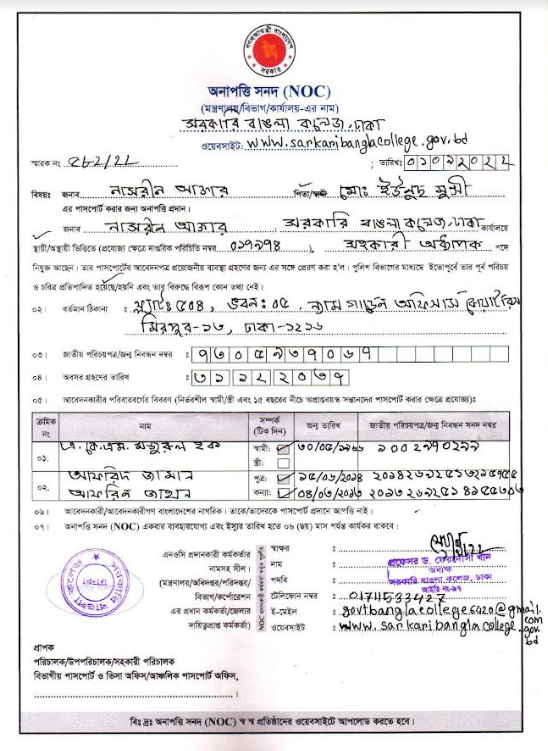 গণপ্রজাতন্ত্রী বাংলাদেশ
সরকার
অনাপত্তি সনদ (NOC)
(মন্ত্রণালয়/বিভাগ/কার্যালয়-এর নাম)
সরকারি বাঙলা কলেজ, ঢাকা
ওয়েবসাইট: www.sarkaribanglacollege.gov.bd
স্মারক নং ; তারিখঃ
বিষয়ঃ জনাব নাসরীন আক্তার পিতা/ মোঃ ইউনুছ মুন্সী
এর পাসপোর্ট করার জন্য অনাপত্তি প্রদান।
জনাব নাসরীন আক্তার সরকারি বাঙলা কলেজ, ঢাকা কার্যালয়ে
স্থায়ী/অস্থায়ী ভিত্তিতে (প্রযোজ্য ক্ষেত্রে দাপ্তরিক পরিচিতি নম্বর ) সহকারী অধ্যাপক পদে
নিযুক্ত আছেন। তার পাসপোর্টের আবেদনপত্র প্রয়োজনীয় ব্যবস্থা গ্রহণের জন্য এর সঙ্গে প্রেরণ করা হ'ল। পুলিশ বিভাগের মাধ্যমে ইতোপূর্বে তার পূর্ব পরিচয়
ও চরিত্র প্রতিপাদিত হয়েছে/হয়নি এবং তার বিরুদ্ধে বিরূপ কোন তথ্য নেই।
০২। বর্তমান ঠিকানা : ফ্ল্যাটঃ ৫০৪, ভবনঃ ০৫, ন্যাম গার্ডেন অফিসার্স কোয়ার্টার্স
মিরপুর-১৩, ঢাকা-১২১৬
০৩। জাতীয় পরিচয়পত্র/জন্ম নিবন্ধন নম্বর :
০৪। অবসর গ্রহণের তারিখ :
০৫। আবেদনকারীর পরিবারবর্গের বিবরণ (নির্ভরশীল স্বামী/স্ত্রী এবং ১৫ বছরের নীচে অপ্রাপ্তবয়স্ক সন্তানদের পাসপোর্ট করার ক্ষেত্রে প্রযোজ্য)ঃ
ক্রমিক নং নাম সম্পর্ক (টিক দিন) জন্ম তারিখ জাতীয় পরিচয়পত্র/জন্ম নিবন্ধন সনদ নম্বর
০১. এ.কে.এম. হক স্বামী:
স্ত্রী:
০২. আফরিদ জামান পুত্র:
আফরিন জাহান কন্যা:
০৬। আবেদনকারী/আবেদনকারীগণ বাংলাদেশের নাগরিক। তাকে/তাদেরকে পাসপোর্ট প্রদানে আপত্তি নাই।
০৭। অনাপত্তি সনদ (NOC) একবার ব্যবহারযোগ্য এবং ইস্যুর তারিখ হতে ০৬ (ছয়) মাস পর্যন্ত কার্যকর থাকবে।
এনওসি প্রদানকারী কর্মকর্তার
নামসহ সীল।
(মন্ত্রণালয়/অধিদপ্তর/পরিদপ্তর/
বিভাগ/কর্পোরেশন
এর প্রধান কর্মকর্তা/জেলার
দায়িত্বপ্রাপ্ত কর্মকর্তা)
স্বাক্ষর :
নাম : প্রফেসর ড. ফেরদৌসী খান
পদবি : অধ্যক্ষ
সরকারি বাঙলা কলেজ, ঢাকা
টেলিফোন নম্বর : 01711533427
ই-মেইল : govtbanglacollege6420@gmail.com
ওয়েবসাইট : www.sarkaribanglacollege.gov.bd
প্রাপক
পরিচালক/উপপরিচালক/সহকারী পরিচালক
বিভাগীয় পাসপোর্ট ও ভিসা অফিস/আঞ্চলিক পাসপোর্ট অফিস,
বিঃ দ্রঃ অনাপত্তি সনদ (NOC) স্ব স্ব প্রতিষ্ঠানের ওয়েবসাইটে আপলোড করতে হবে।